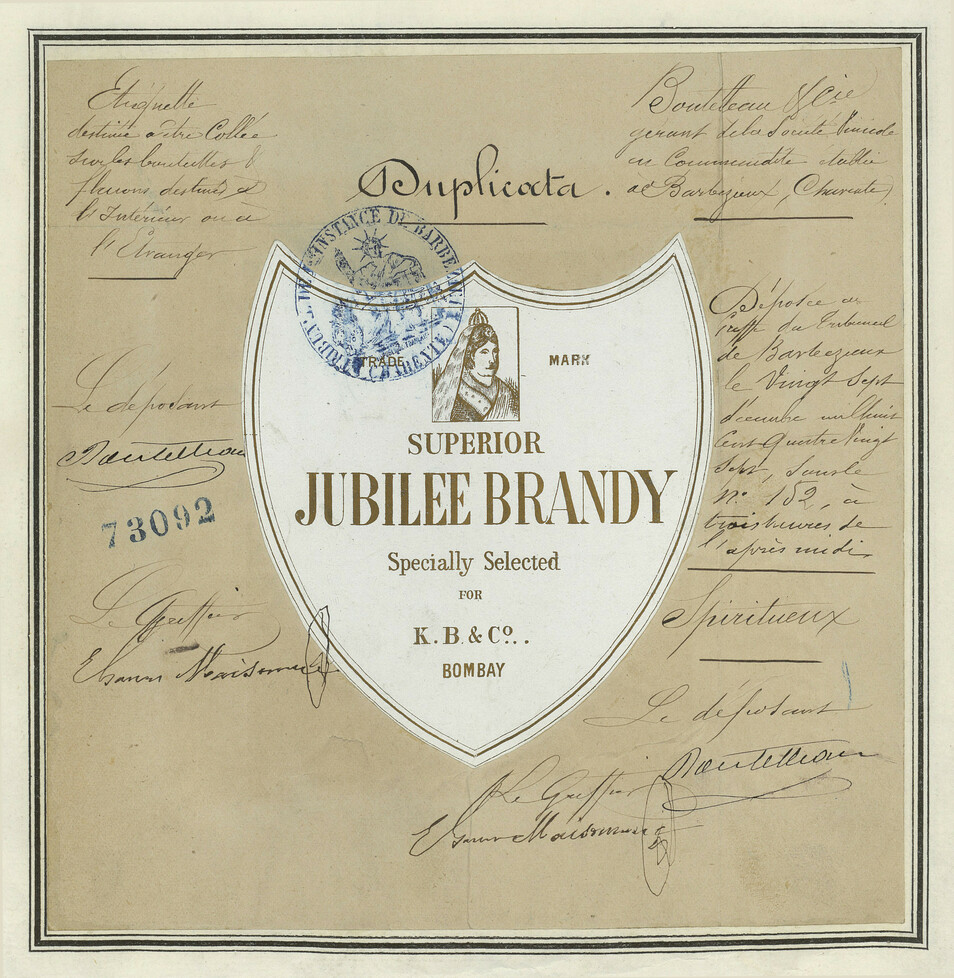 Etiquette
destinée à être Collée
sur les bouteilles &
flacons destinés à
l'Intérieur ou à
l'Etranger
Duplicata.
Boutelleau & Cie
gérant de la Société Vinicole
en Commandite établie
à Barbezieux, (Charente)
TRIBUNAL DE 1ère INSTANCE DE BARBEZIEUX
(CHARENTE)
TRADE
MARK
SUPERIOR
JUBILEE BRANDY
Specially Selected
FOR
K. B. & Co..
BOMBAY
Le déposant
Boutelleau
73092
Le Greffier
Maisonneuve
Déposée au
Greffe du Tribunal
de Barbezieux
le Vingt Sept
décembre mil huit
Cent Quatre Vingt
Sept, sous le
No. 152, à
trois heures de
l'après midi
Spiritueux
Le déposant
Boutelleau
Le Greffier
Maisonneuve